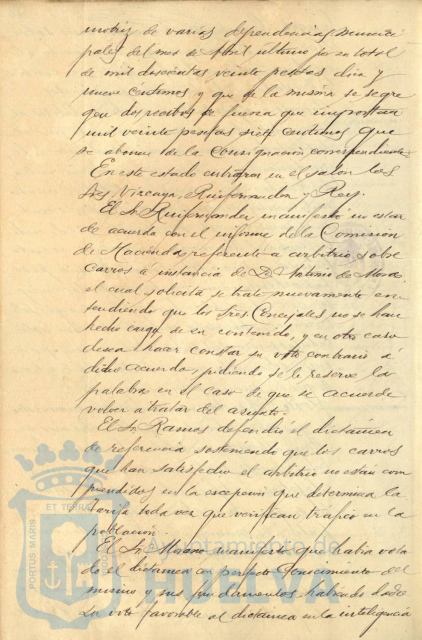 motriz de varias dependencias munici
pales del mes de Abril ultimo por su total
de mil doscientas veinte pesetas diez y
nueve centimos y que de la misma se segre
guen dos recibos de fuerza que importan
mil veinte pesetas siete centimos que
se abonen de la Consignación correspondiente.
En este estado entraron en el salon los
Sres. Vizcaya, Ruifernandez y Rey.
El Sr. Ruifernandez manifestó no estar
de acuerdo con el informe de la Comision
de Hacienda referente a arbitrio sobre
carros á instancia de D. Antonio de Mora
el cual solicita se trate nuevamente en
tendiendo que los Sres Concejales no se han
hecho cargo de su contenido, y en otro caso
desea hacer constar su voto contrario á
dicho acuerdo, pidiendo se le reserve la
palabra en el caso de que se acuerde
volver a tratar del asunto.
El Sr. Ramos defendió el dictámen
de referencia sosteniendo que los carros
que han satisfecho el arbitrio no están com
prendidos en la escepcion que determina la
Tarifa toda vez que verifican trafico en la
población.
El Sr. manifestó que habia vota
do el dictamen con perfecto conocimiento del
mismo y sus fundamentos habiendo dado
su voto favorable al dictámen en la inteligencia
PORTUS MARIS
ET TERRAE
Ayuntamiento de
HUELVA